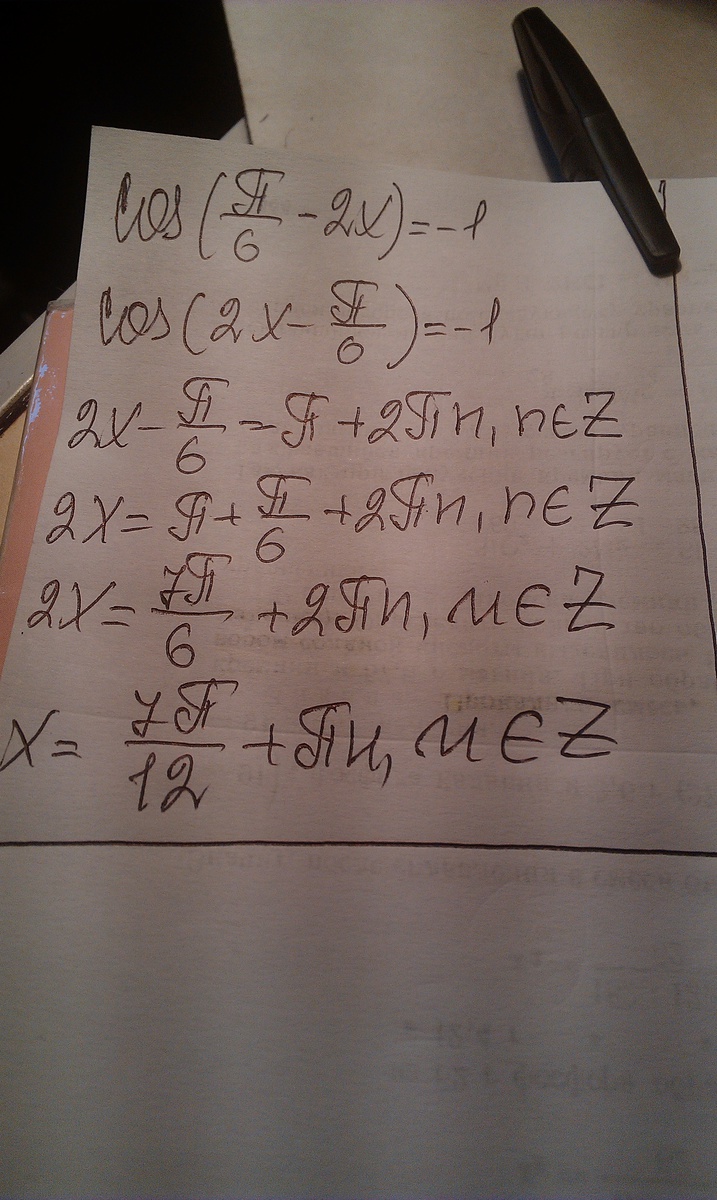 cos(π/6 - 2x) = -1
cos(2x - π/6) = -1
2x - π/6 = π + 2πn, n ∈ Z
2x = π + π/6 + 2πn, n ∈ Z
2x = 7π/6 + 2πn, n ∈ Z
x = 7π/12 + πn, n ∈ Z